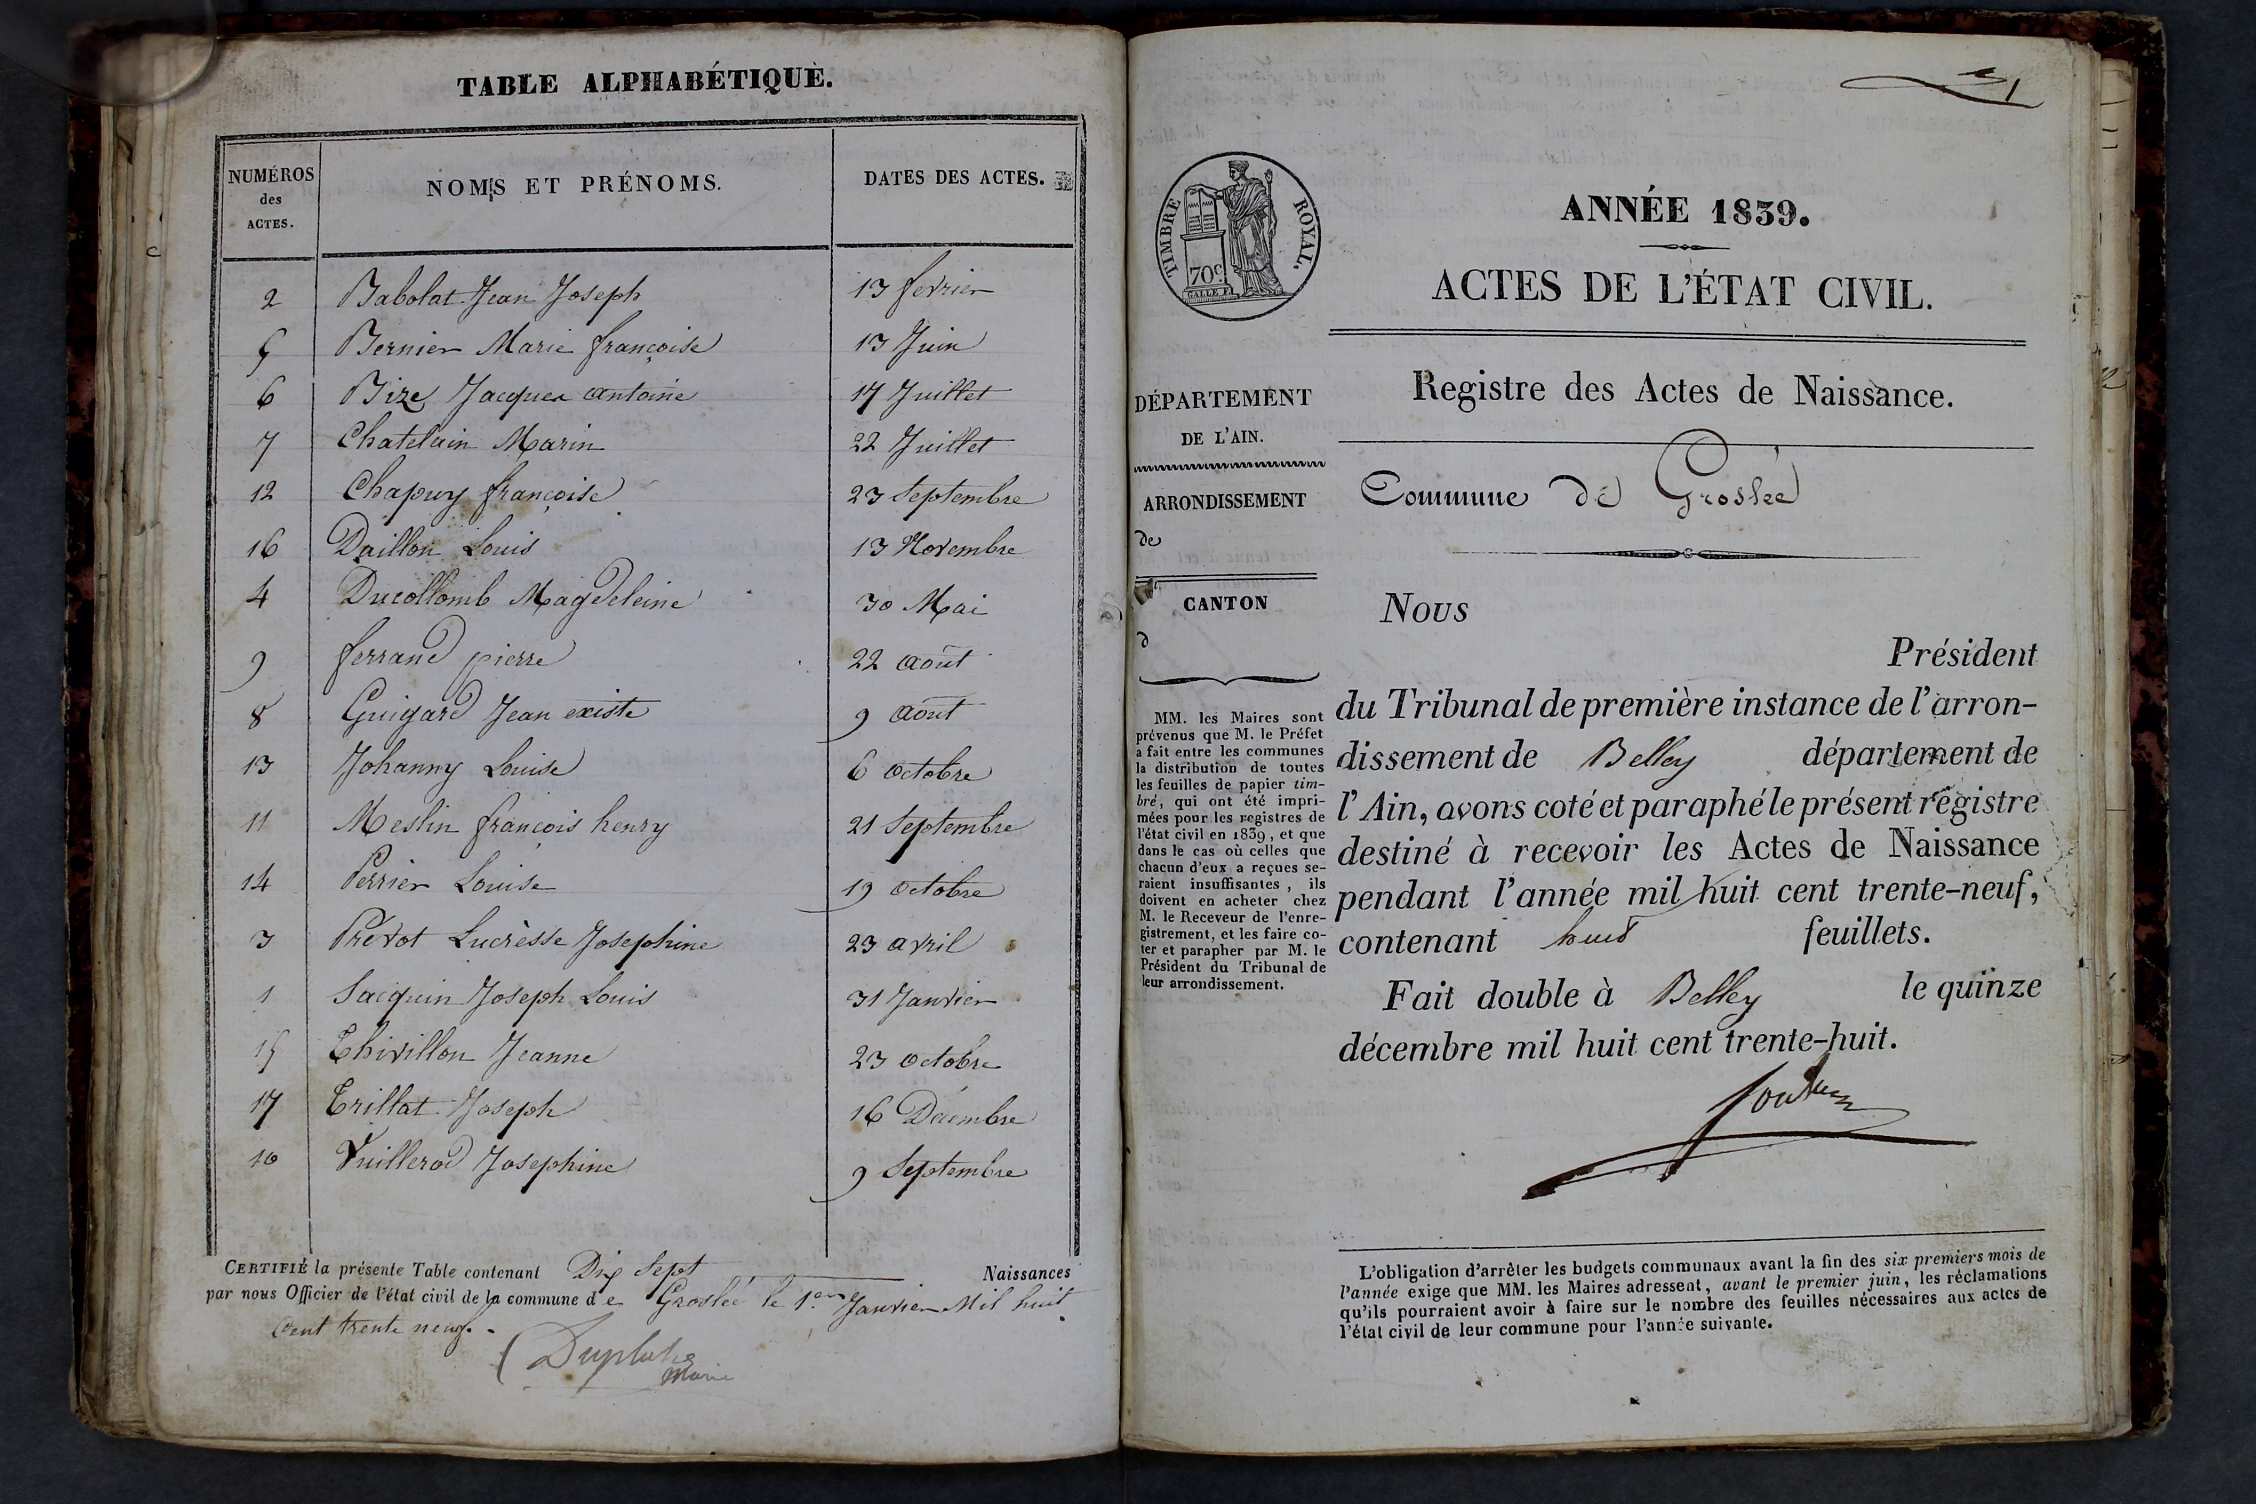 TABLE ALPHABÉTIQUE.
NUMÉROS des ACTES. NOMS ET PRÉNOMS. DATES DES ACTES.
2 Babolat Jean Joseph 13 fevrier
5 Bernier Marie françoise 13 Juin
6 Bize Jacques antoine 17 Juillet
7 Chatelain Marin 22 Juillet
12 Chapuy françoise 23 Septembre
16 Daillon Louis 13 Novembre
4 Ducollomb Magdeleine 30 Mai
9 ferrand pierre 22 aout
8 Guigard Jean existe 9 aout
13 Johanny Louise 6 octobre
11 Meslin françois henry 21 Septembre
14 Perrier Louise 19 octobre
3 Prevot Lucrèsse Josephine 23 avril
1 Sacquin Joseph Louis 31 Janvier
15 Thivillon Jeanne 23 octobre
17 Trillat Joseph 16 Décembre
10 Vuillerod Josephine 9 Septembre
CERTIFIÉ la présente Table contenant Dix Sept Naissances
par nous Officier de l'état civil de la commune de Groslée le 1er Janvier Mil huit
Cent trente neuf.
Maire
1
TIMBRE ROYAL.
70c.
ANNÉE 1839.
ACTES DE L'ÉTAT CIVIL.
Registre des Actes de Naissance.
Commune de Groslée
DÉPARTEMENT
DE L'AIN.
ARRONDISSEMENT
de
CANTON
d
MM. les Maires sont
prévenus que M. le Préfet
a fait entre les communes
la distribution de toutes
les feuilles de papier tim-
bré, qui ont été impri-
mées pour les registres de
l'état civil en 1839, et que
dans le cas où celles que
chacun d'eux a reçues se-
raient insuffisantes, ils
doivent en acheter chez
M. le Receveur de l'enre-
gistrement, et les faire co-
ter et parapher par M. le
Président du Tribunal de
leur arrondissement.
Nous
Président
du Tribunal de première instance de l'arron-
dissement de Belley département de
l'Ain, avons coté et paraphé le présent registre
destiné à recevoir les Actes de Naissance
pendant l'année mil huit cent trente-neuf,
contenant huit feuillets.
Fait double à Belley le quinze
décembre mil huit cent trente-huit.
L'obligation d'arrêter les budgets communaux avant la fin des six premiers mois de
l'année exige que MM. les Maires adressent, avant le premier juin, les réclamations
qu'ils pourraient avoir à faire sur le nombre des feuilles nécessaires aux actes de
l'état civil de leur commune pour l'année suivante.